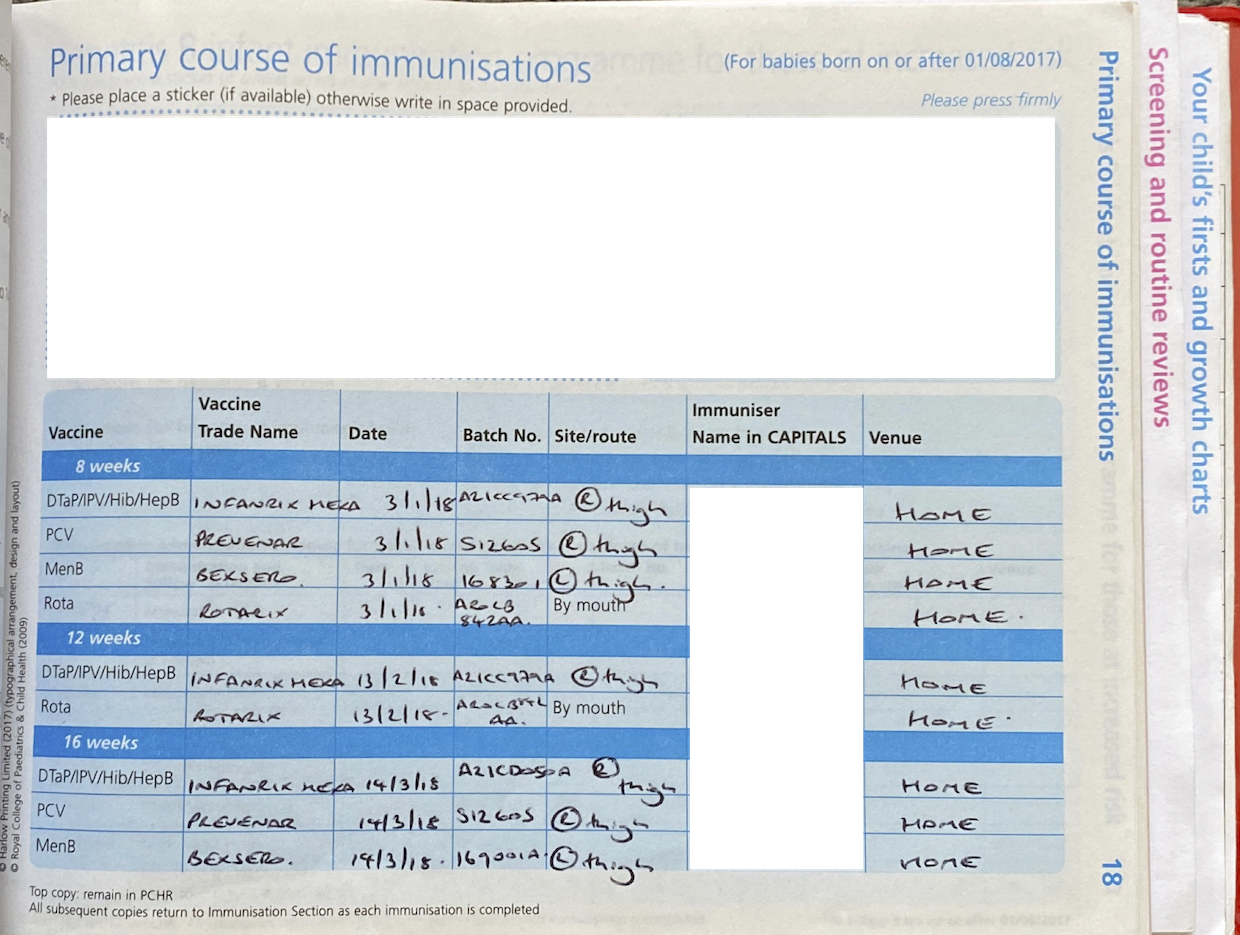 Primary course of immunisations (For babies born on or after 01/08/2017)
* Please place a sticker (if available) otherwise write in space provided. Please press firmly
Vaccine Vaccine Trade Name Date Batch No. Site/route Immuniser Name in CAPITALS Venue
8 weeks
DTaP/IPV/Hib/HepB INFANRIX HEXA 3/1/18 A21CC979A (R) thigh HOME
PCV PREVENAR 3/1/18 S12605 (R) thigh HOME
MenB BEXSERO. 3/1/18 168301 (L) thigh. HOME
Rota ROTARIX 3/1/18. AROLB 842AA. By mouth HOME.
12 weeks
DTaP/IPV/Hib/HepB INFANRIX HEXA 13/2/18 A21CC979A (R) thigh HOME
Rota ROTARIX 13/2/18. AA. By mouth HOME.
16 weeks
DTaP/IPV/Hib/HepB INFANRIX HEXA 14/3/18 A21CD050A (R) thigh HOME
PCV PREVENAR 14/3/18 S12605 (R) thigh HOME
MenB BEXSERO. 14/3/18. 169001A (L) thigh HOME
Top copy: remain in PCHR
All subsequent copies return to Immunisation Section as each immunisation is completed
© Harlow Printing Limited (2017) (typographical arrangement, design and layout)
© Royal College of Paediatrics & Child Health (2009)
Primary course of immunisations 18
Screening and routine reviews
Your child's firsts and growth charts